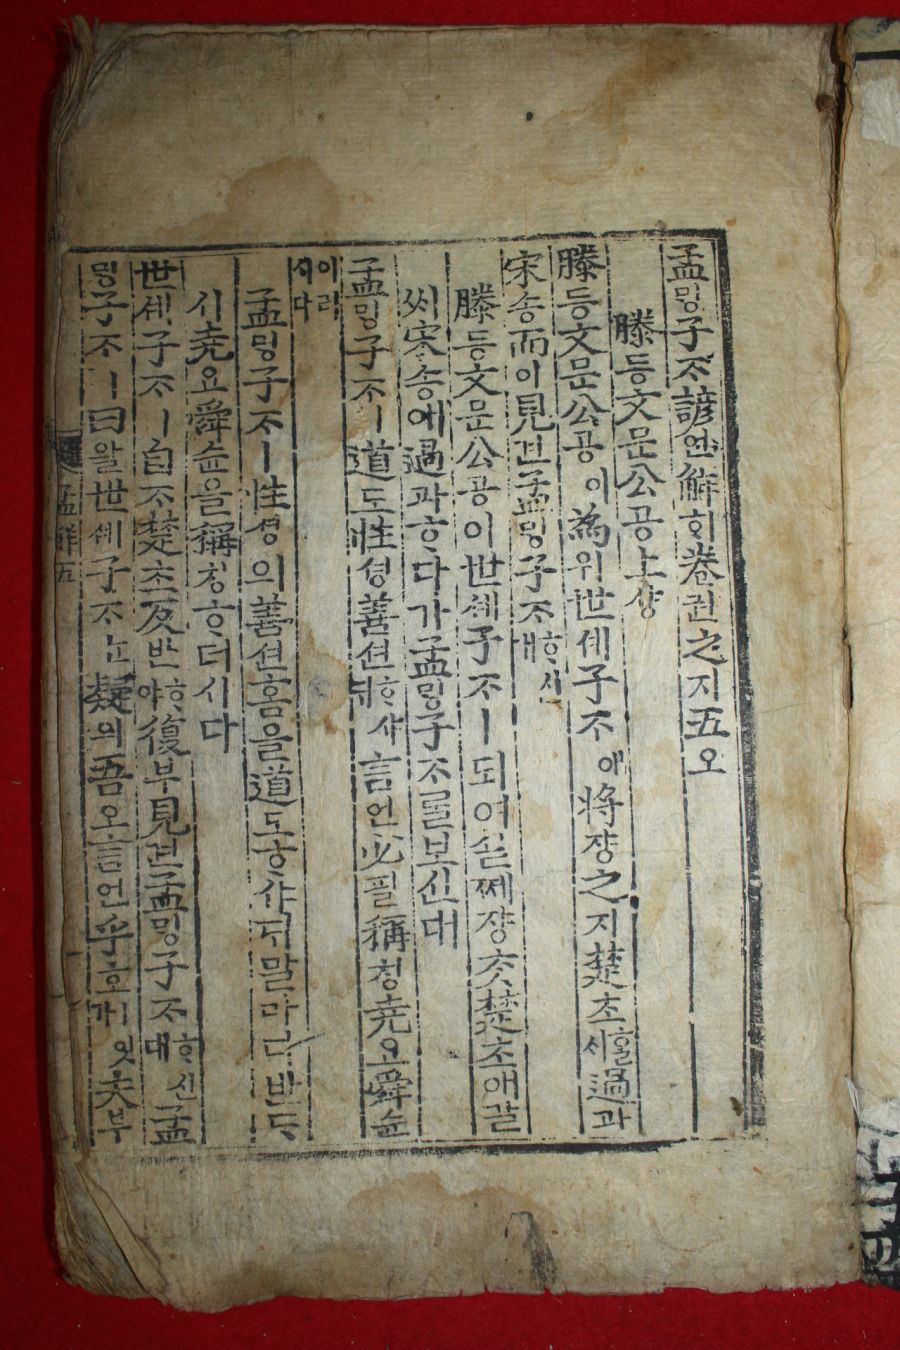 孟ᄆᆡᇰ子ᄌᆞ諺언解ᄒᆡ卷권之지五오
滕등文문公공上샹
滕등文문公공이爲위世셰子ᄌᆞ애將쟝之지楚초ᄒᆞᆯ시過과
宋송而이見견孟ᄆᆡᇰ子ᄌᆞᄒᆞ신대
滕등文문公공이世셰子ᄌᆞㅣ되여실ᄶᅦ쟝ᄎᆞᆺ楚초애갈
ᄉᆡ宋송에過과ᄒᆞ다가孟ᄆᆡᇰ子ᄌᆞᄅᆞᆯ보신대
孟ᄆᆡᇰ子ᄌᆞㅣ道도性셩善션ᄒᆞ샤ᄃᆡ言언必필稱칭堯요舜슌
이러시다
孟ᄆᆡᇰ子ᄌᆞㅣ性셩의善션홈을道도ᄒᆞ샤ᄃᆡ말마다반ᄃᆞ
시堯요舜슌을稱칭ᄒᆞ더시다
世셰子ᄌᆞㅣ自ᄌᆞ楚초反반ᄒᆞ야復부見견孟ᄆᆡᇰ子ᄌᆞᄒᆞ신대孟
ᄆᆡᇰ子ᄌᆞㅣ曰왈世셰子ᄌᆞᄂᆞᆫ疑의吾오言언乎호ㅣ잇가夫부
孟解五